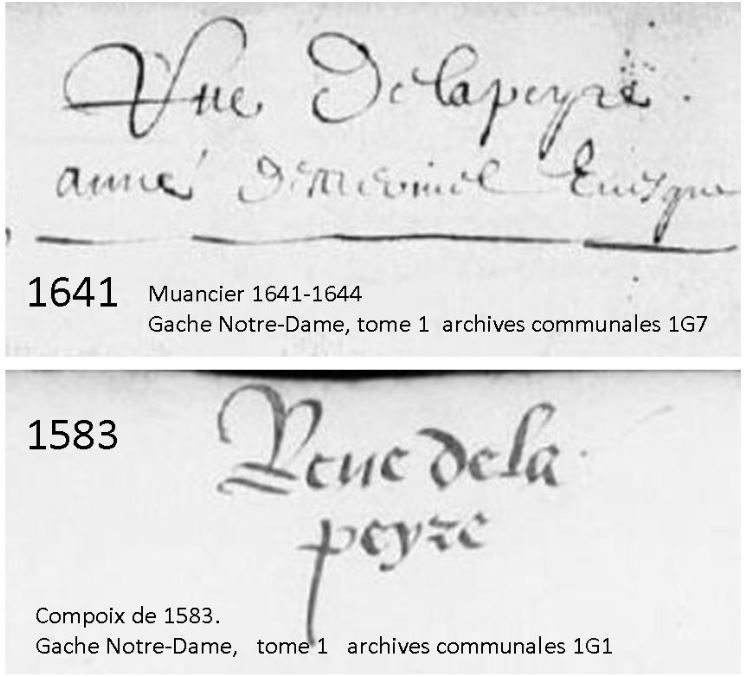 Rue Delapeyre.
1641
Muancier 1641-1644
Gache Notre-Dame, tome 1 archives communales 1G7
1583
Reue dela
peyre
Compoix de 1583.
Gache Notre-Dame, tome 1 archives communales 1G1